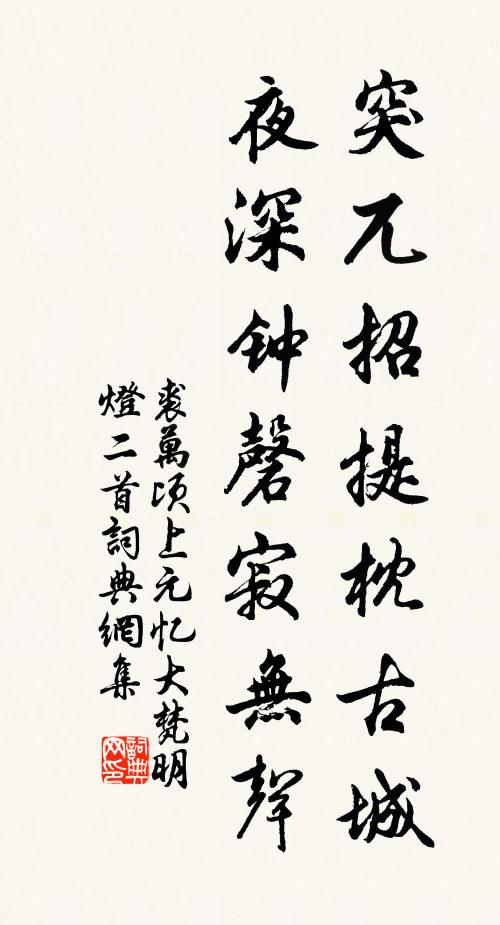 突兀招提枕古城
夜深钟磬寂無聲
裘萬顷上元忆大梵明
燈二首詞典網集
詞典
网印